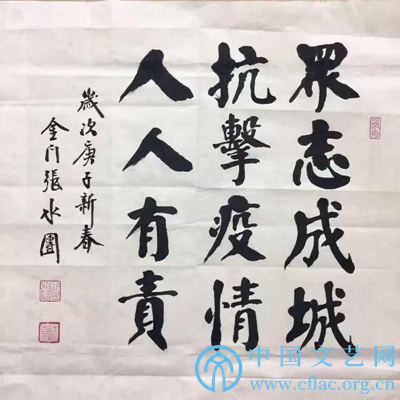 眾志成城
抗擊疫情
人人有責
歲次庚子新春
金門張水團
中国文艺网
www.cflac.org.cn